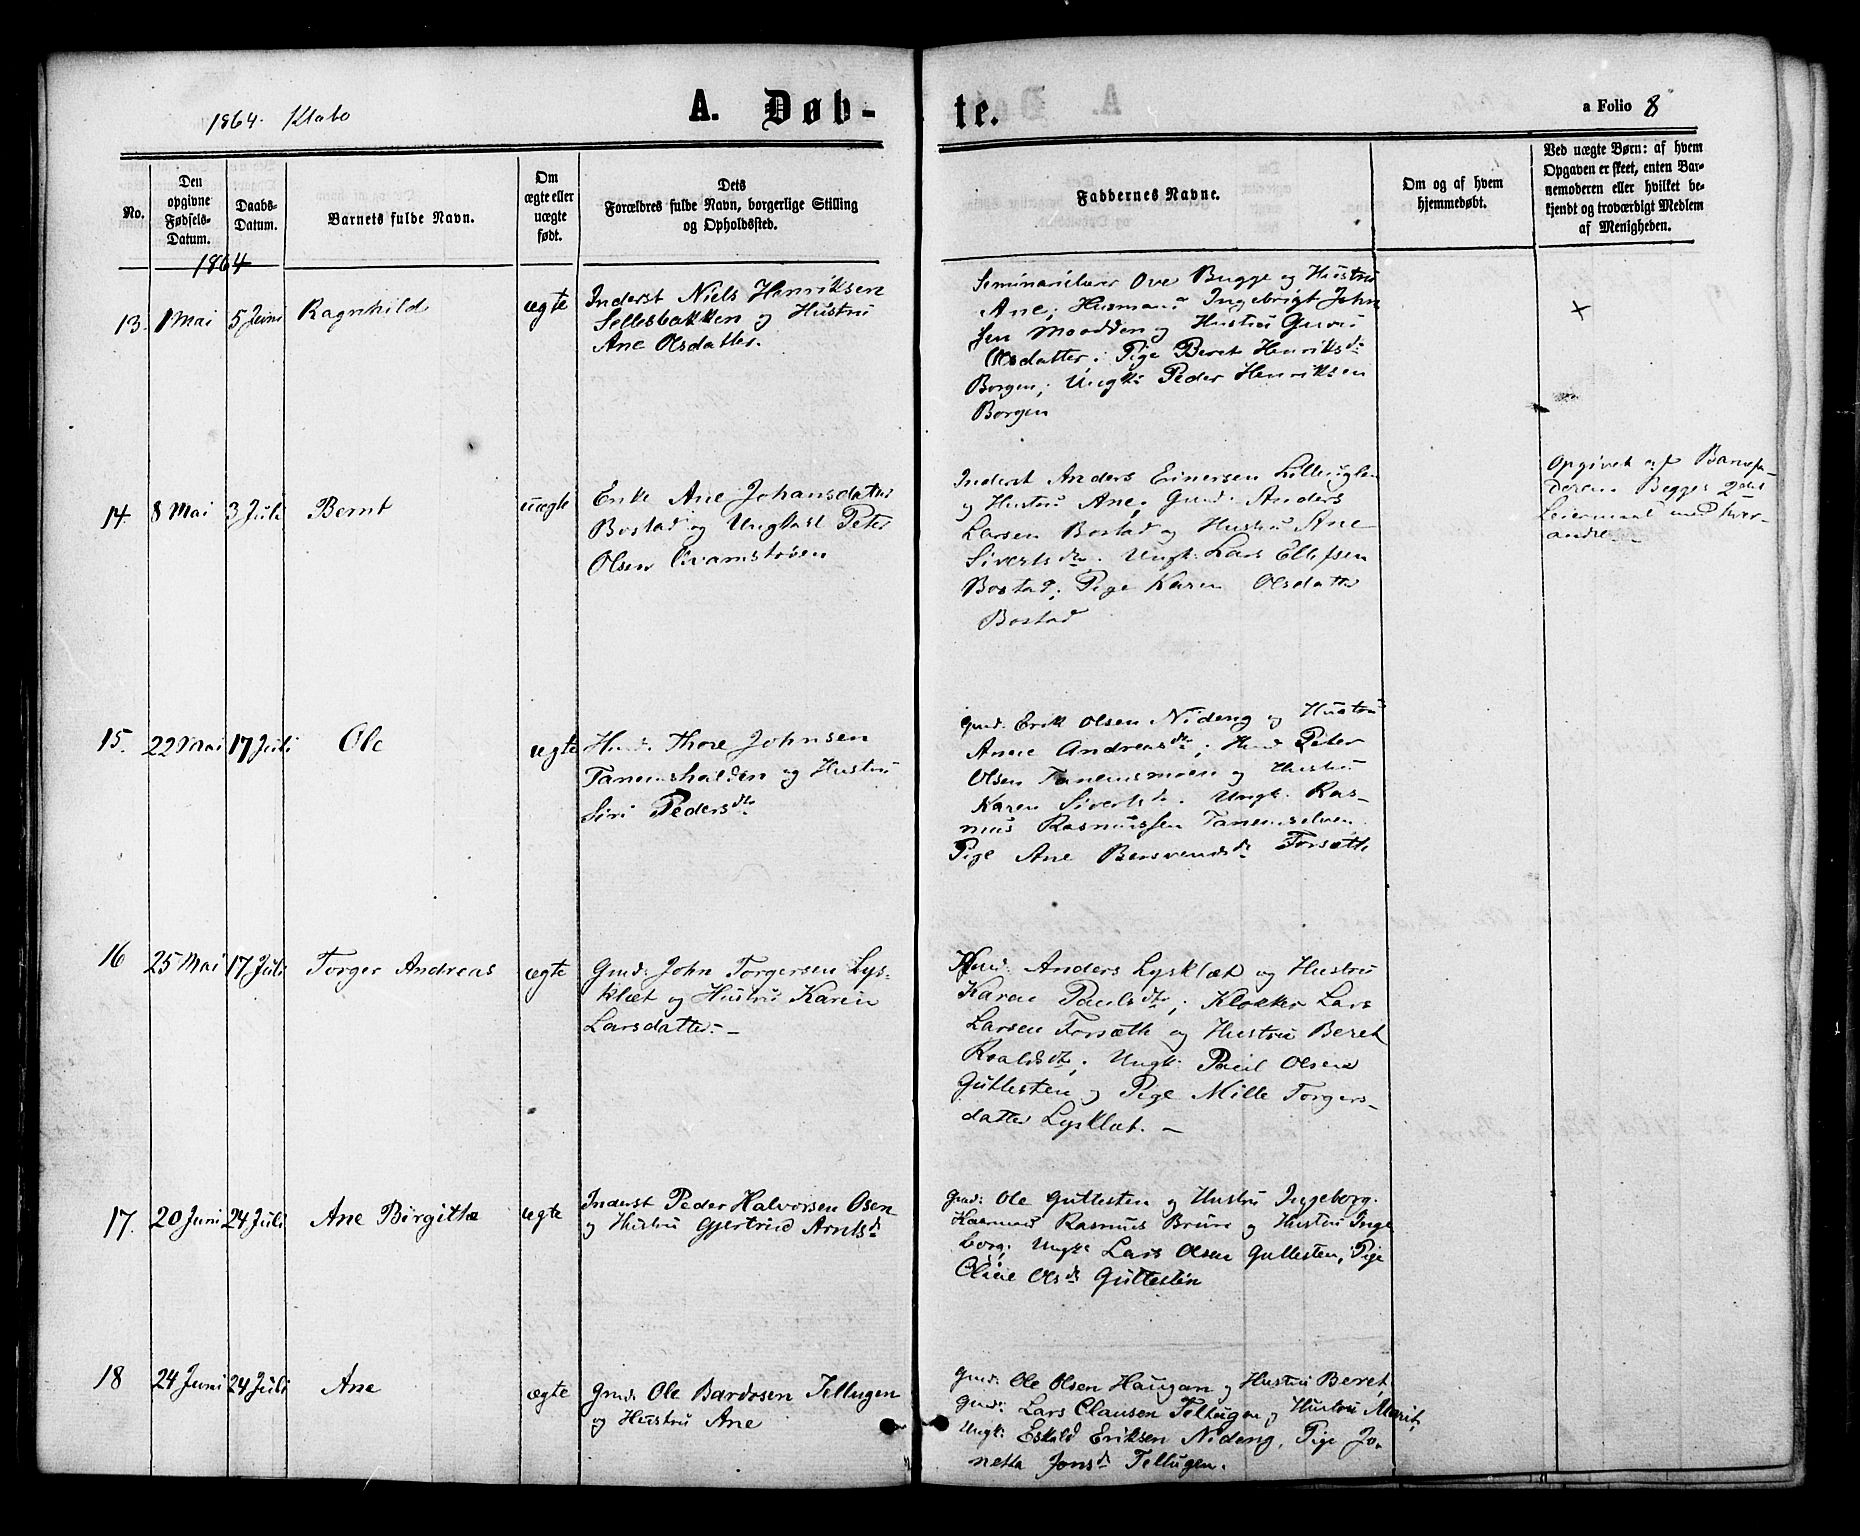 1864. Klæbo
A. Døb-
te.
a Folio 8
No.
Den
opgivne
Fødsels-
Datum.
Daabs-
Datum.
Barnets fulde Navn.
Om
ægte eller
uægte
født.
Dets
Forældres fulde Navn, borgerlige Stilling
og Opholdssted.
Faddernes Navne.
Om og af hvem
hjemmedøbt.
Ved uægte Børn: af hvem
Opgaven er skeet, enten Bar-
nemoderen eller hvilket be-
kjendt og troværdigt Medlem
af Menigheden.
1864
13. 1 Mai 5 Juni Ragnhild ægte
Inderst Niels Henriksen
Sellesbakken og Hustru
Ane Olsdatter.
Seminarielærer Ove Bugge og Hustru
Ane; Husmand Ingebrigt John
sen Moodden og Hustru Guru
Olsdatter; Pige Beret Henriksdr
Borgen; Ungk: Peder Henriksen
Borgen
14. 8 Mai 3 Juli Bernt uægte
Enke Ane Johansdatter
Bostad og Ungkarl Peter
Olsen Kvamstøen
Inderst Anders Einersen Lilleuglen
og Hustru Ane; Gmd: Anders
Larsen Bostad og Hustru Ane
Sivertsdr. Ungk: Lars Ellefsen
Bostad; Pige Karen Olsdatter
Bostad
Opgivet af Barnefa-
deren. Begges 2det
Leiermaal med hver-
andre. -
15. 22 Mai 17 Juli Ole ægte
Husmd: Thore Johnsen
Tanemshalden og Hustru
Siri Pedersdtr
Gmd: Erik Olsen Nideng og Hustru
Anne Andreasdtr; Husmd Peter
Olsen Tanemsmoen og Hustru
Karen Sivertsdr. Ungk: Ras-
mus Rasmussen Tanemselven.
Pige Ane Bersvendsdr Forsæth
16 25 Mai 17 Juli Torger Andreas ægte
Gmd: John Torgersen Lys-
klæt og Hustru Karen
Larsdatter. -
Kmd: Anders Lysklæt og Hustru
Karen Paulsdtr; Klokker Lars
Larsen Forsæth og Hustru Beret
Roaldsdtr; Ungk: Paul Olsen
Guttesten og Pige Mille Torgers-
datter Lysklæt. -
17. 20 Juni 24 Juli Ane Birgitha ægte
Inderst Peder Halvorsen Osen
og Hustru Gjertrud Arntsdr
Gmd: Ole Guttesten og Hustru Ingeborg.
Kaarmand Rasmus Bruro og Hustru Inge
borg; Ungk: Lars Olsen Guttesten; Pige
Oline Olsdr Guttesten
18 24 Juni 24 Juli Ane ægte
Gmd: Ole Bardosen Tellugen
og Hustru Ane
Gmd: Ole Olsen Haugan og Hustru Beret,
Gmd: Lars Clausen Tellugen og Hustru Marit,
Ungk: Eskild Eriksen Nideng, Pige Jo-
netta Jonsdr Tellugen.